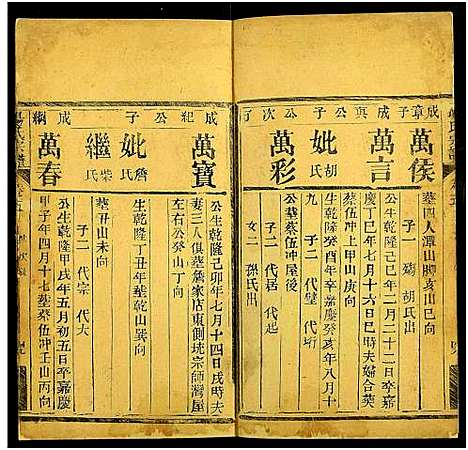 成章子
成興公子
成次公子
萬侯
墓四人潭山脚亥山巳向
子一 瑒 胡氏出
萬言
公生乾隆己巳年二月二十二日卒嘉
慶丁巳年七月十六日巳時夫婦合葬
蔡伍冲上甲山庚向
妣胡氏
生乾隆癸酉年卒嘉慶癸亥年八月十
九 子二 代璧 代珩
萬彩
公葬蔡伍冲屋後
子二 代居 代起
女二 孫氏出
成紀公子
成綱
萬寶
公生乾隆己卯年七月十四日戌時夫
妻三人俱葬詹家店東側垅宗師灣屋
左右公癸山丁向
妣詹氏
生乾隆丁丑年葬乾山巽向
繼柴氏
墓丑山未向
子二 代宗 代大
萬春
公生乾隆甲戌年五月初五日卒嘉慶
甲子年四月十七葬蔡伍冲壬山丙向